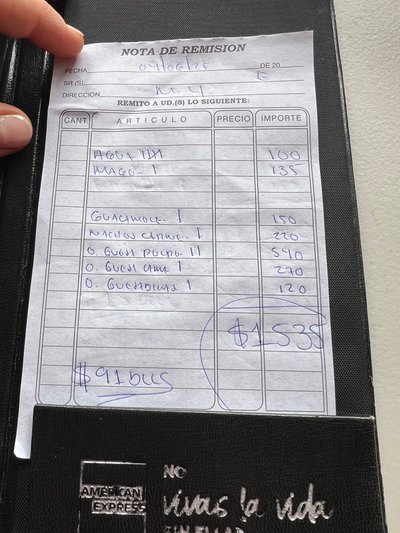 NOTA DE REMISION
FECHA 04/06/25 DE 20
SR.(S) E
DIRECCION M. 4
REMITO A UD.(S) LO SIGUIENTE:
CANT. ARTICULO PRECIO IMPORTE
AGUA 100
MAGO - 1 135
GUACAMOLE - 1 150
NACHOS CARNE - 1 220
O. QUESA PULPO II 540
O. QUESA 1 270
O. QUESADILLAS 1 120
$1535
$91 DLLS
NO
AMERICAN EXPRESS
vivas la vida
SIN ELLA